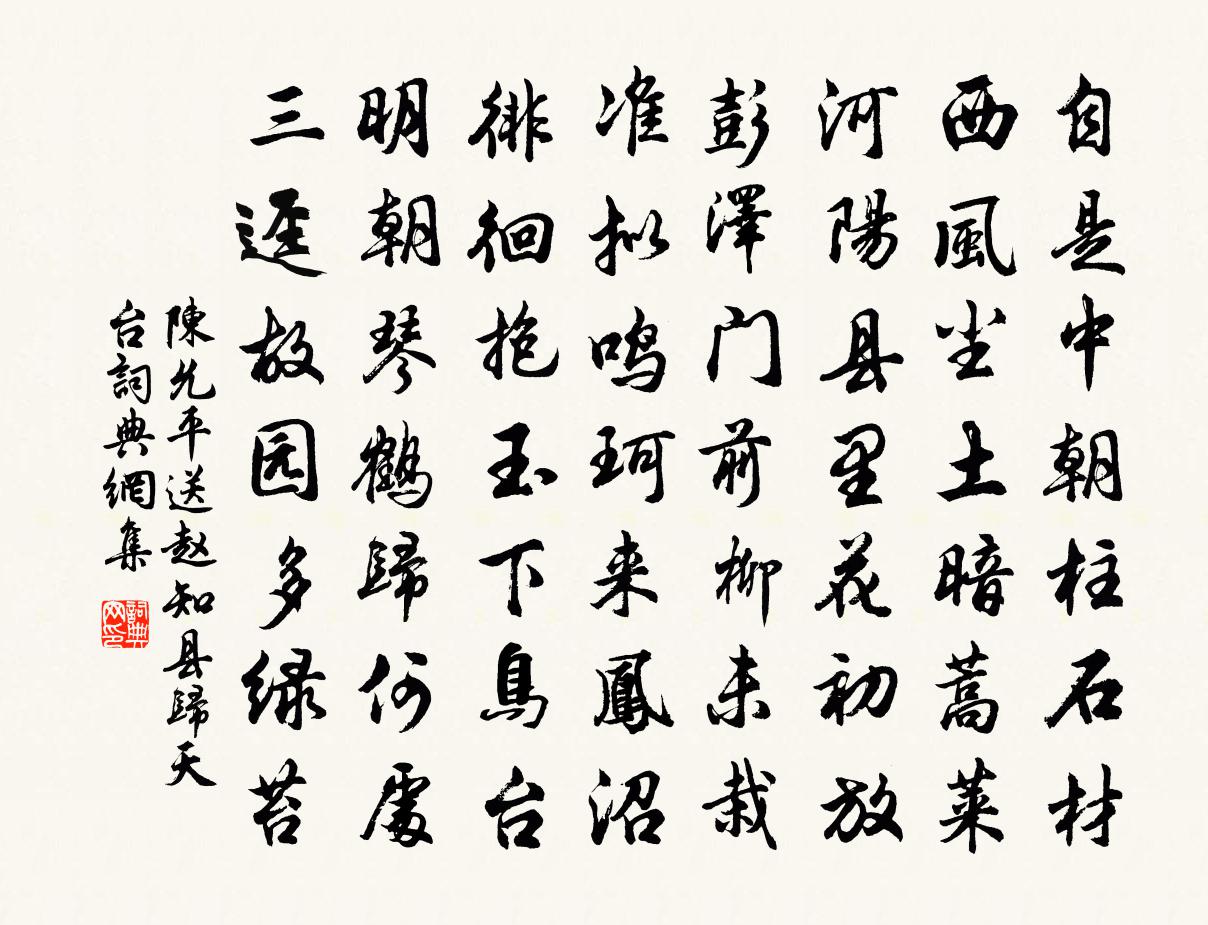 自是中朝柱石材
西風尘土暗蒿莱
河陽县里花初放
彭澤门前柳未栽
准拟鸣珂来鳳沼
徘徊抱玉下烏台
明朝琴鶴歸何處
三逕故园多绿苔
陳允平送赵知县歸天
台詞典網集
詞典
网印